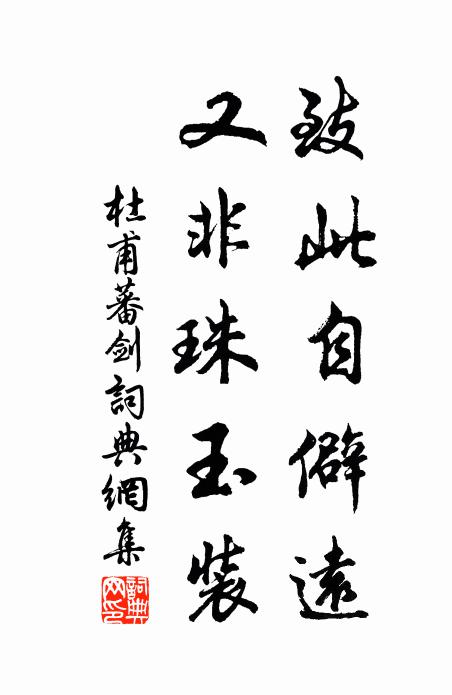 致此自僻遠
又非珠玉裝
杜甫蕃劍詞典網集
詞典網印